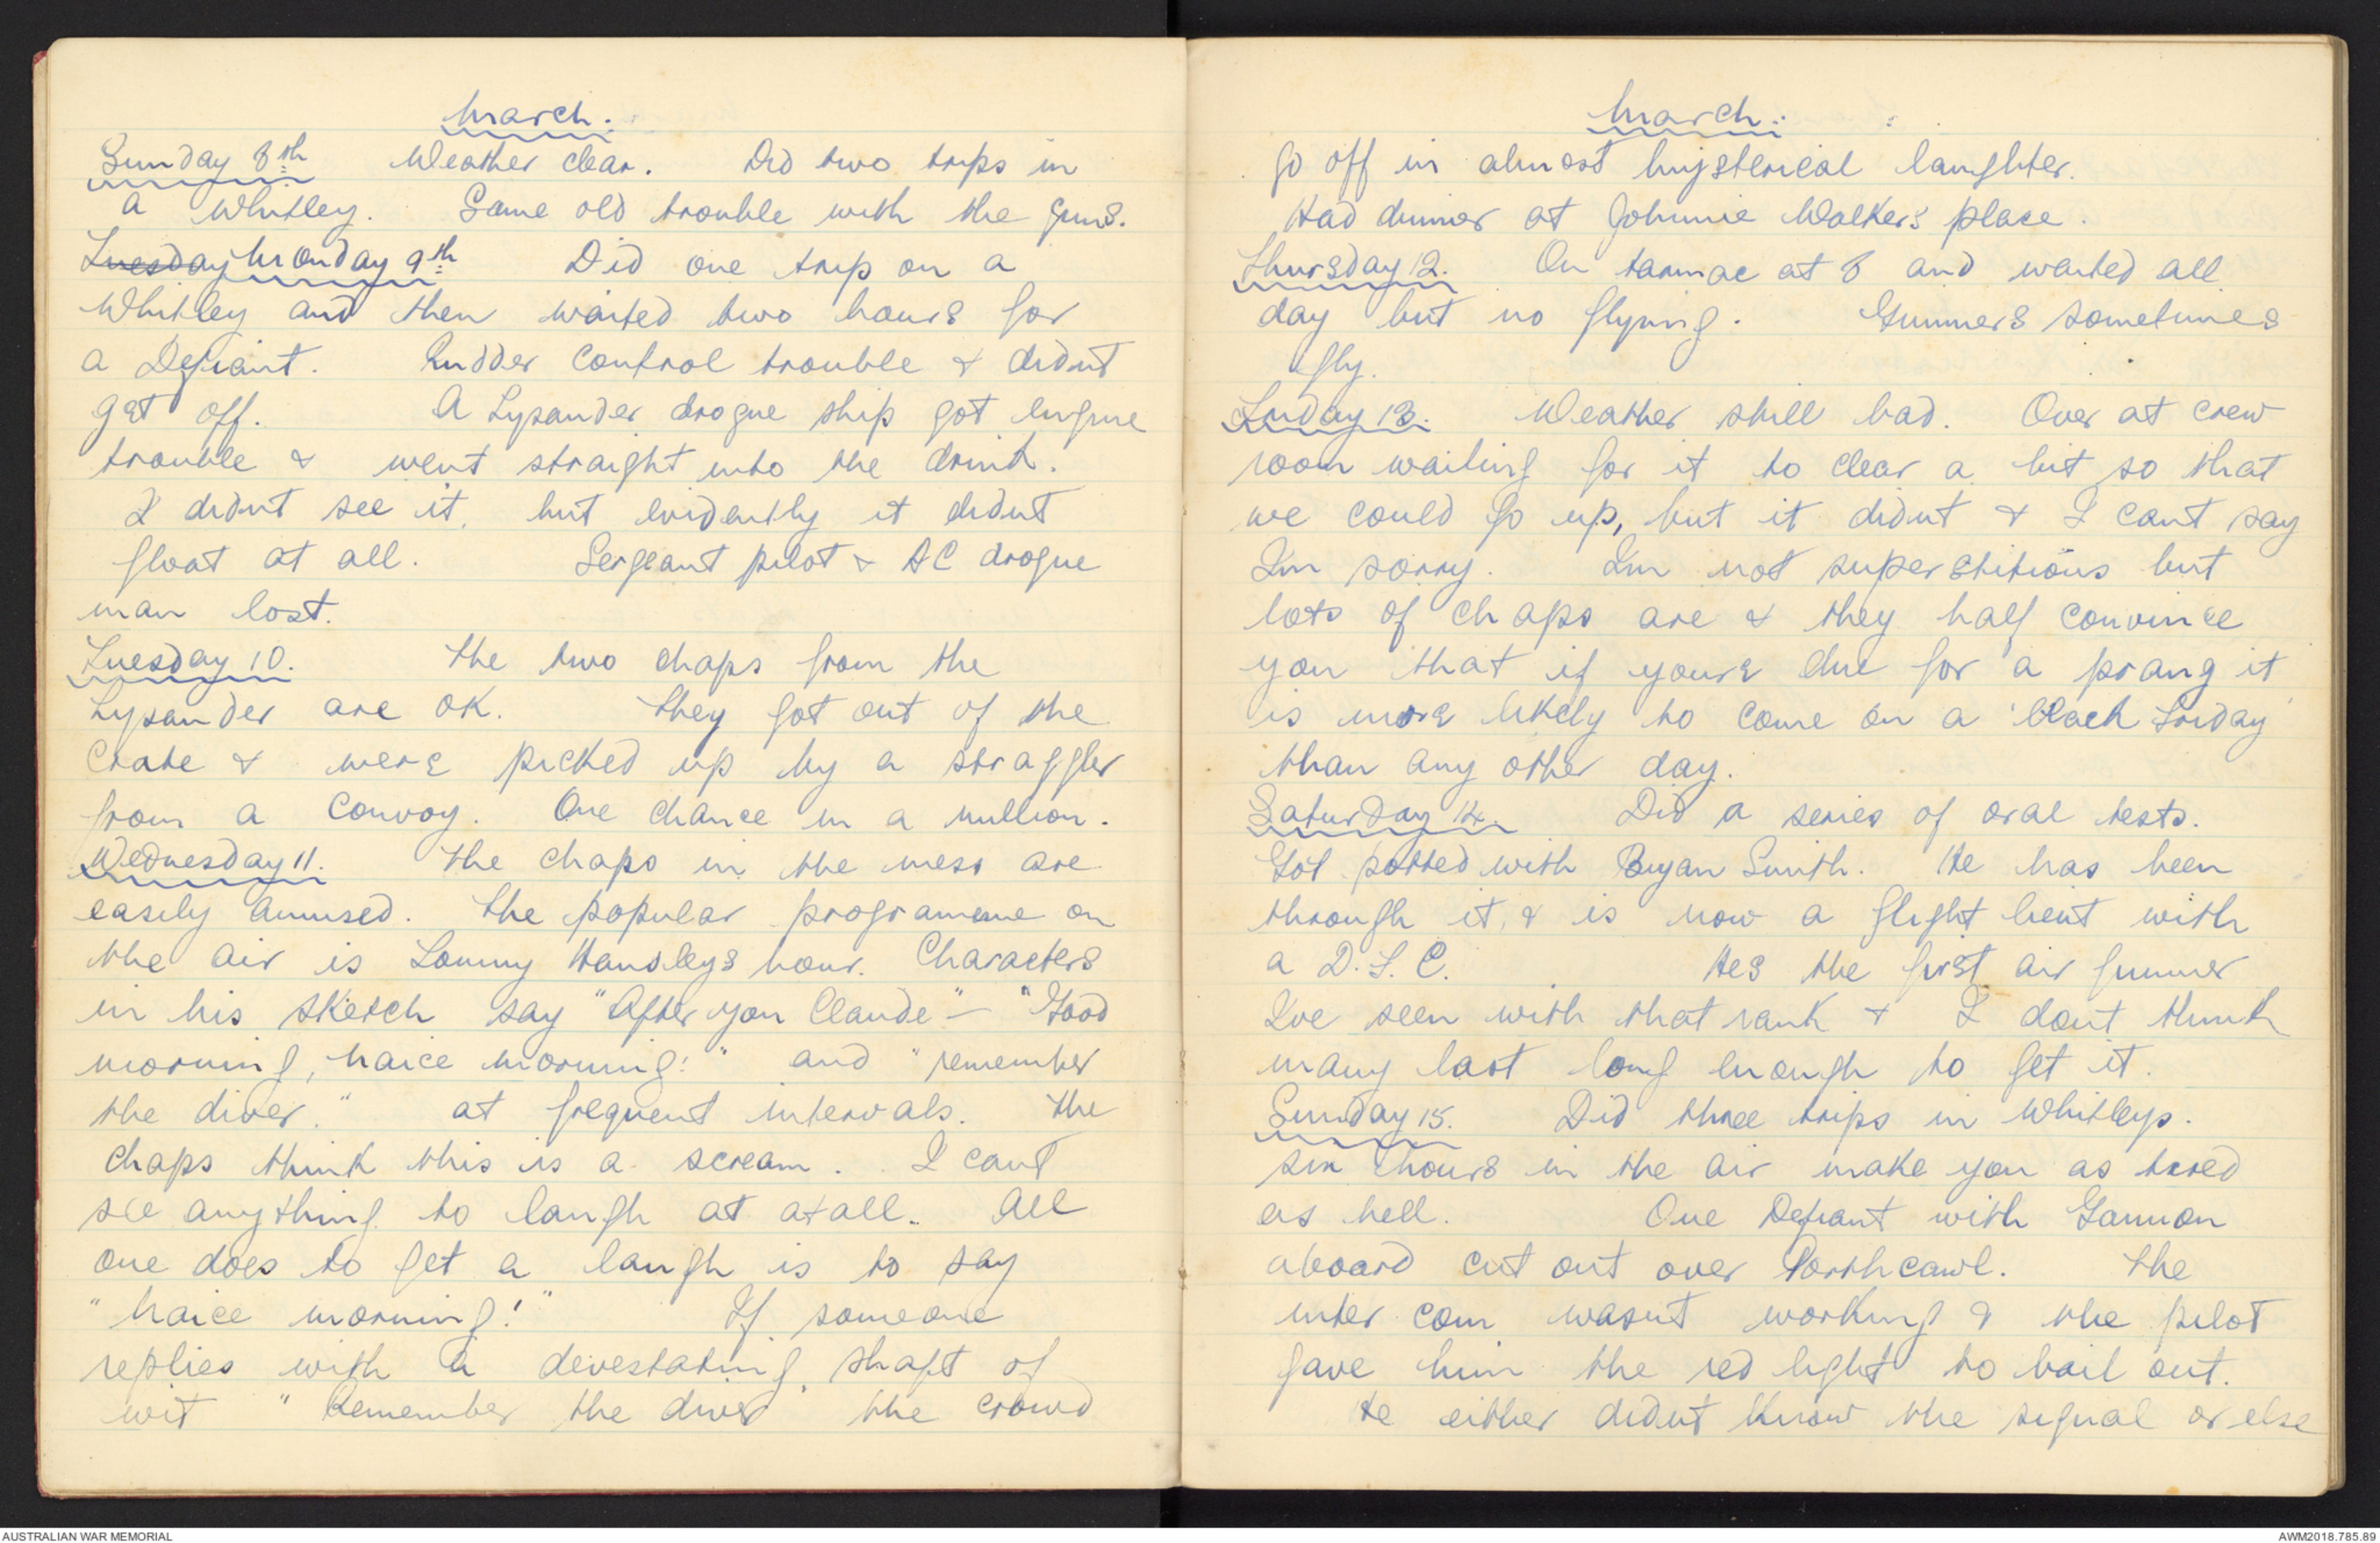 March.
Sunday 8th Weather clear. Did two trips in
a Whitley. Same old trouble with the guns.
Tuesday Monday 9th Did one trip on a
Whitley and then waited two hours for
a Defiant. Rudder control trouble & didnt
get off. A Lysander drogue ship got engine
trouble & went straight into the drink.
I didnt see it, but evidently it didnt
float at all. Sergeant pilot & AC drogue
man lost.
Tuesday 10. The two chaps from the
Lysander are OK. They got out of the
crate & were picked up by a straggler
from a convoy. One chance in a million.
Wednesday 11. The chaps in the mess are
easily amused. The popular programme on
the air is Tommy Handleys hour. Characters
in his sketch say "After you Claude" - "Good
morning, naice morning!" and "remember
the diver." at frequent intervals. The
chaps think this is a scream. I cant
see anything to laugh at at all. All
one does to get a laugh is to say
"Naice morning!" If someone
replies with a devestating shaft of
wit "Remember the diver" the crowd
March.
go off in almost hysterical laughter.
Had dinner at Johnnie Walkers place.
Thursday 12. On tarmac at 8 and waited all
day but no flying. Gunners sometimes
fly.
Friday 13. Weather still bad. Over at crew
room waiting for it to clear a bit so that
we could go up, but it didnt & I cant say
Im sorry. Im not superstitious but
lots of chaps are & they half convince
you that if youre due for a prang it
is more likely to come on a 'black Friday'
than any other day.
Saturday 14. Did a series of oral tests.
Got potted with Bryan Smith. He has been
through it, & is now a flight lieut with
a D.F.C. Hes the first air gunner
Ive seen with that rank & I dont think
many last long enough to get it.
Sunday 15. Did three trips in Whitleys.
Six hours in the air make you as tired
as hell. One Defiant with Gannon
aboard cut out over Porthcawl. The
inter com wasnt working & the pilot
gave him the red light to bail out.
He either didnt know the signal or else
AUSTRALIAN WAR MEMORIAL
AWM2018.785.89